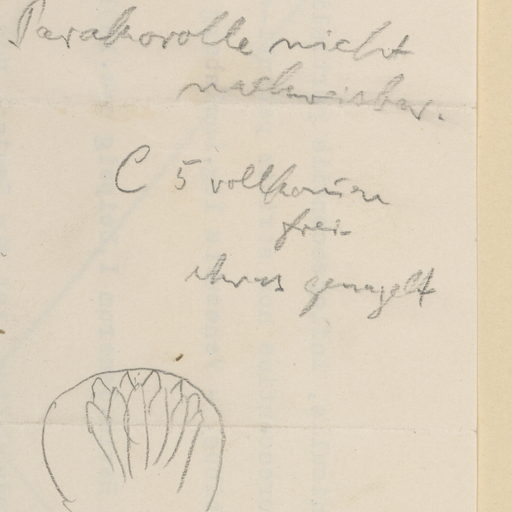 Parakorolle nicht
nachweisbar.
C 5 vollkom̄en
frei
etwas genagelt